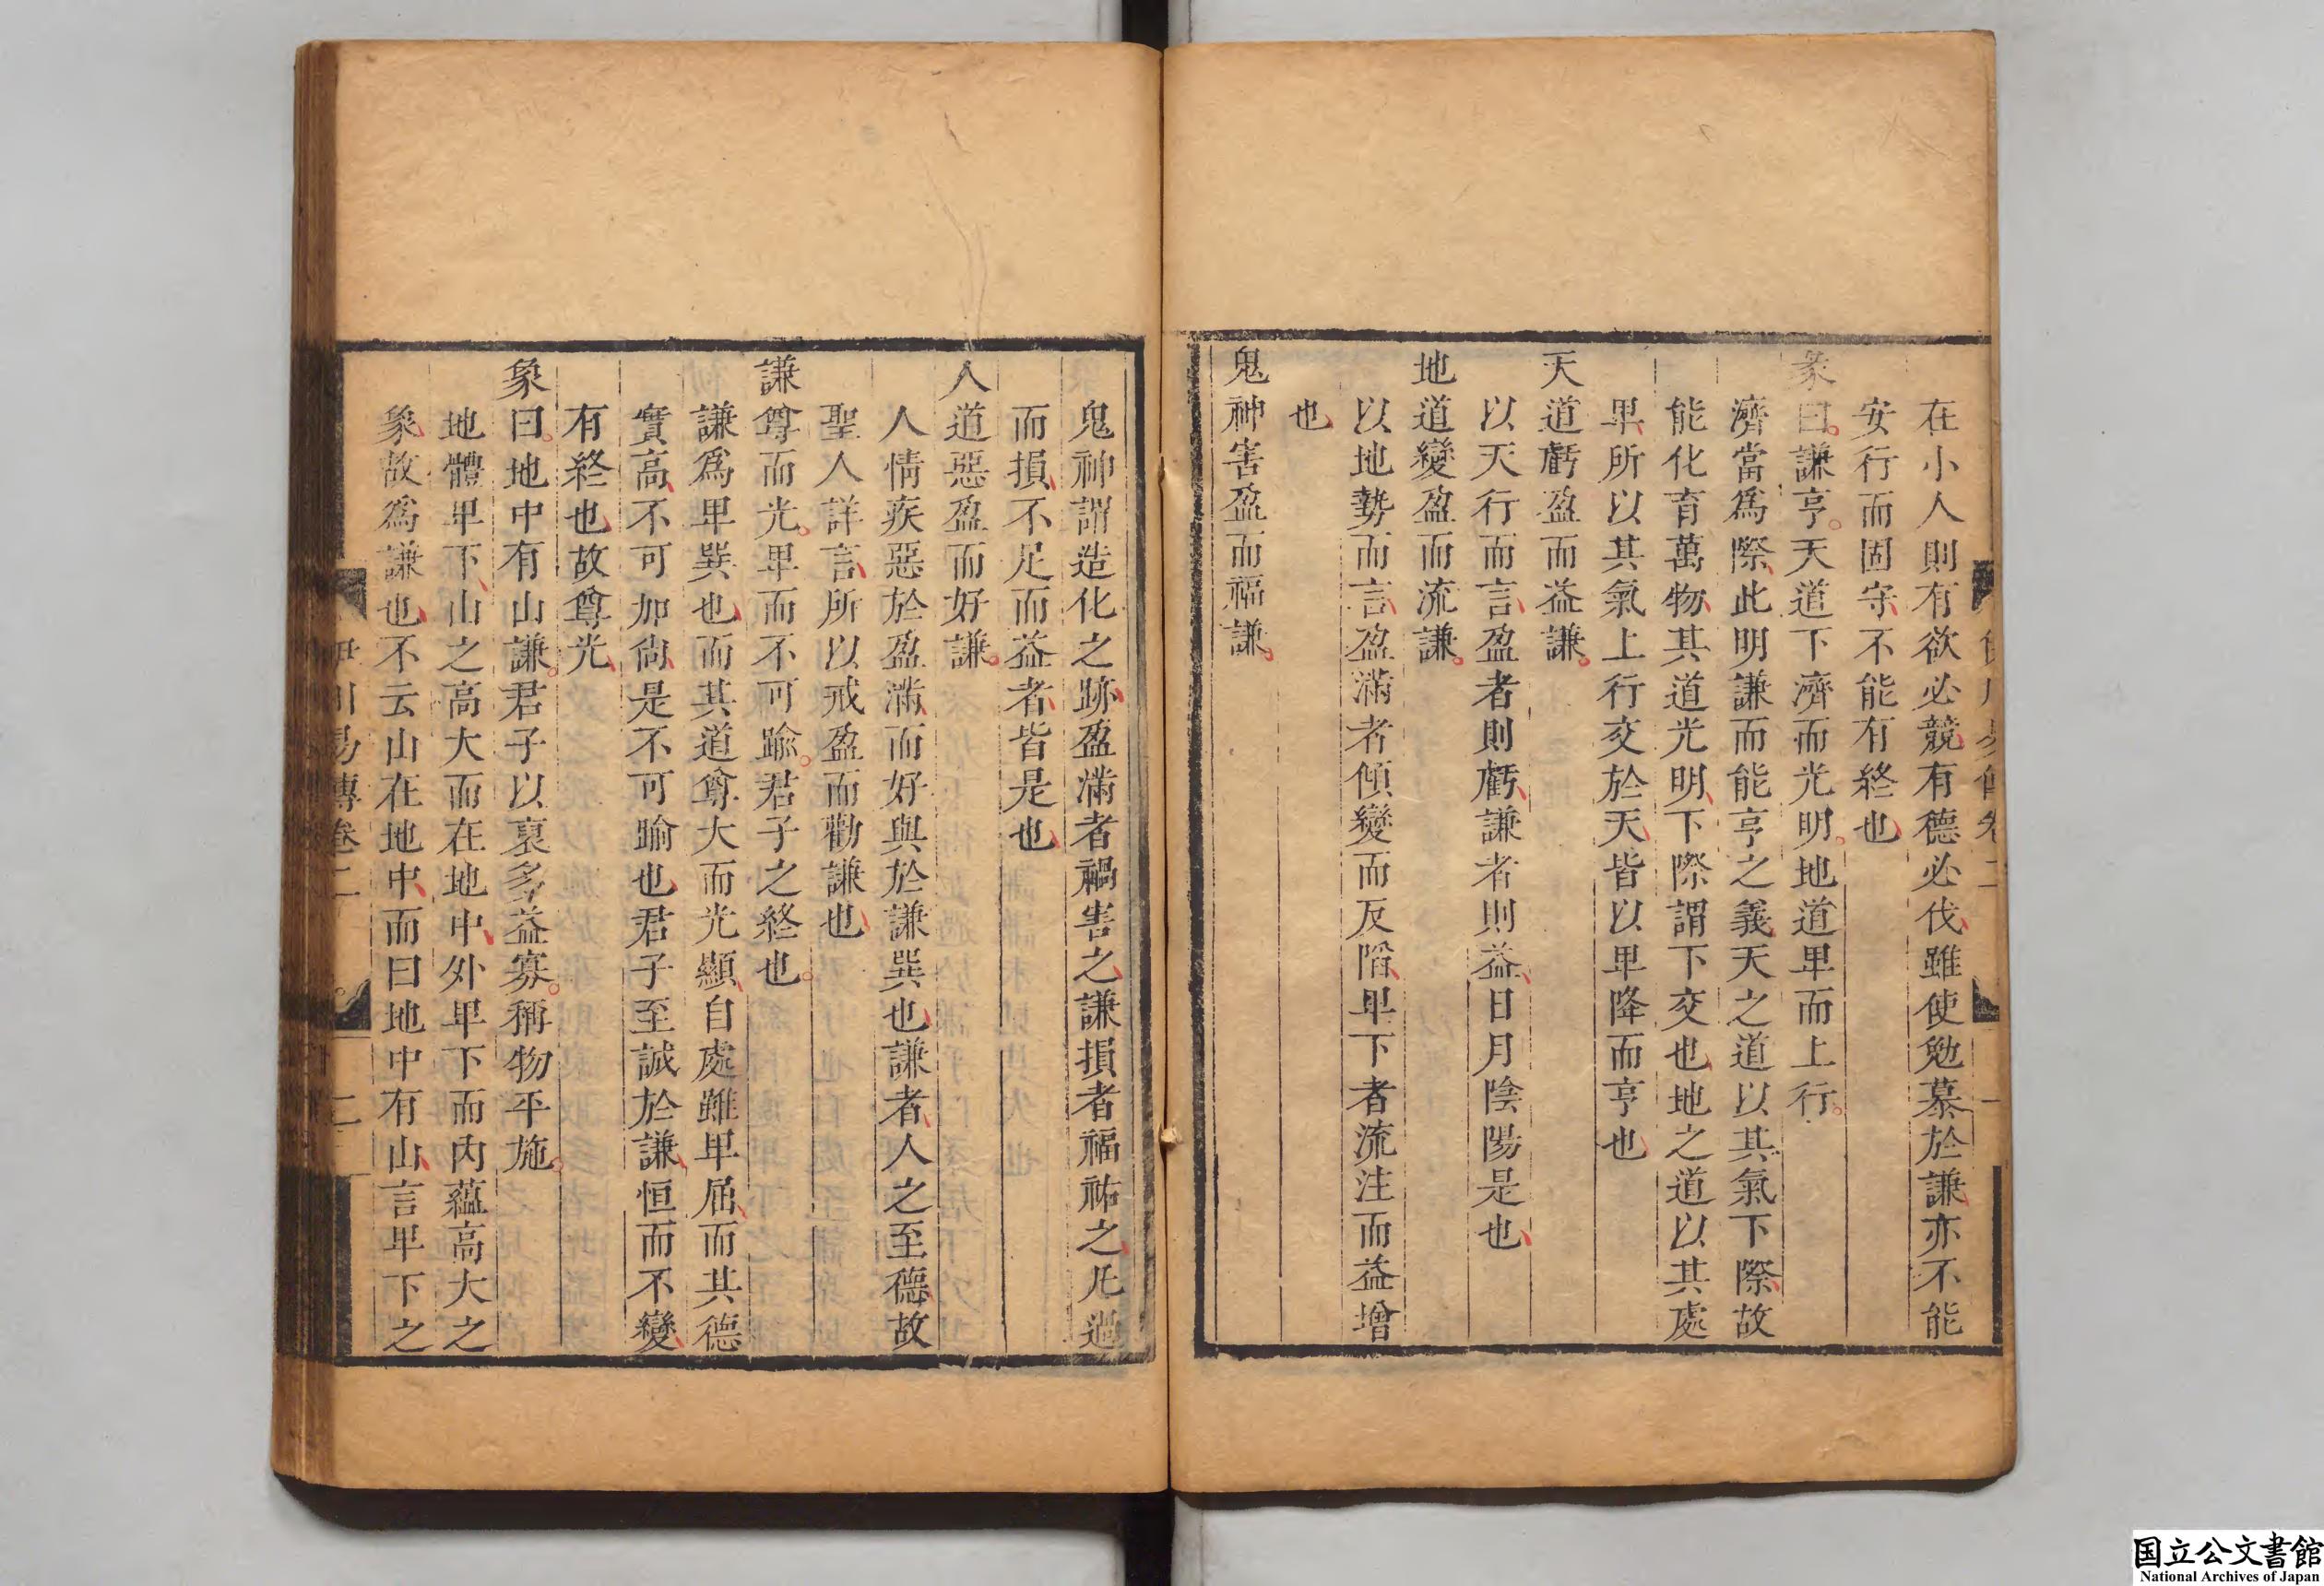 在小人則有欲必競有德必伐雖使勉慕於謙亦不能
安行而固守不能有終也
彖曰謙亨天道下濟而光明地道卑而上行
濟當爲際此明謙而能亨之義天之道以其氣下際故
能化育萬物其道光明下際謂下交也地之道以其處
卑所以其氣上行交於天皆以卑降而亨也
天道虧盈而益謙
以天行而言盈者則虧謙者則益日月陰陽是也
地道變盈而流謙
以地勢而言盈滿者傾變而反陷卑下者流注而益增
也
鬼神害盈而福謙
鬼神謂造化之跡盈滿者禍害之謙損者福祐之凡過
而損不足而益者皆是也
人道惡盈而好謙
人情疾惡於盈滿而好與於謙巽也謙者人之至德故
聖人詳言所以戒盈而勸謙也
謙尊而光卑而不可踰君子之終也
謙爲卑巽也而其道尊大而光顯自處雖卑屈而其德
實高不可加尙是不可踰也君子至誠於謙恒而不變
有終也故尊光
象曰地中有山謙君子以裒多益寡稱物平施
地體卑下山之高大而在地中外卑下而內蘊高大之
象故爲謙也不云山在地中而曰地中有山言卑下之
伊川易傳卷二
二
国立公文書館
National Archives of Japan